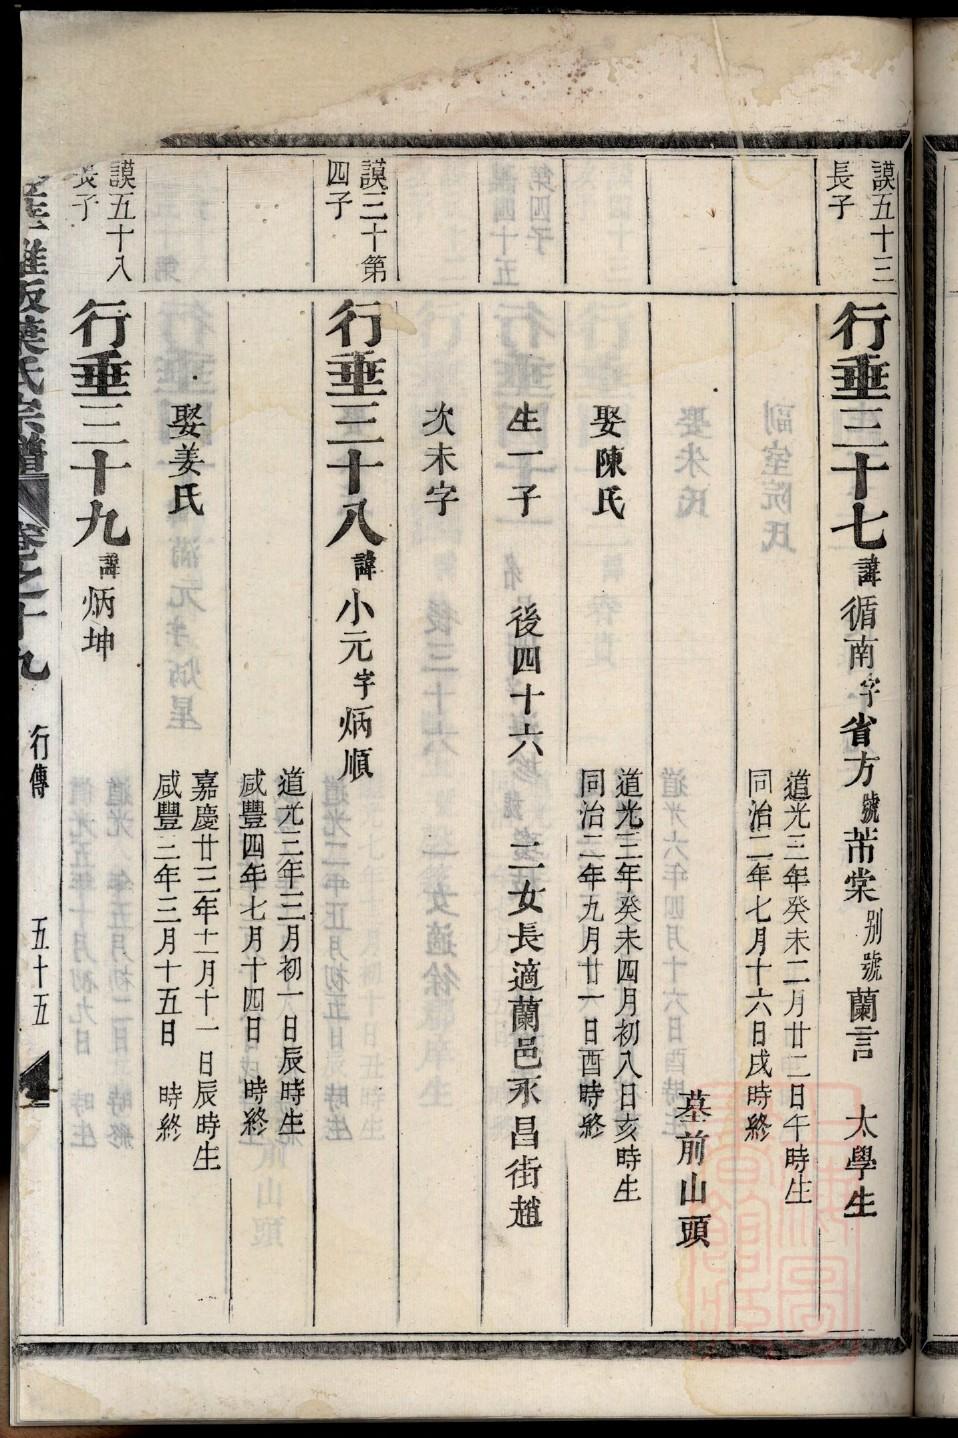 謨五十三
長子
行垂三十七 諱循南字省方號芾棠別號蘭言 太學生
道光三年癸未二月廿二日午時生
同治二年七月十六日戌時終
墓前山頭
娶陳氏
道光三年癸未四月初八日亥時生
同治二年九月廿一日酉時終
生一子 後四十六 二女長適蘭邑永昌街趙
次未字
謨三十第
四子
行垂三十八 諱小元字炳順
道光三年三月初一日辰時生
咸豐四年七月十四日 時終
娶姜氏
嘉慶廿三年十二月十一日辰時生
咸豐三年三月十五日 時終
謨五十八
長子
行垂三十九 諱炳坤
葉氏宗譜 卷之十九 行傳 五十五